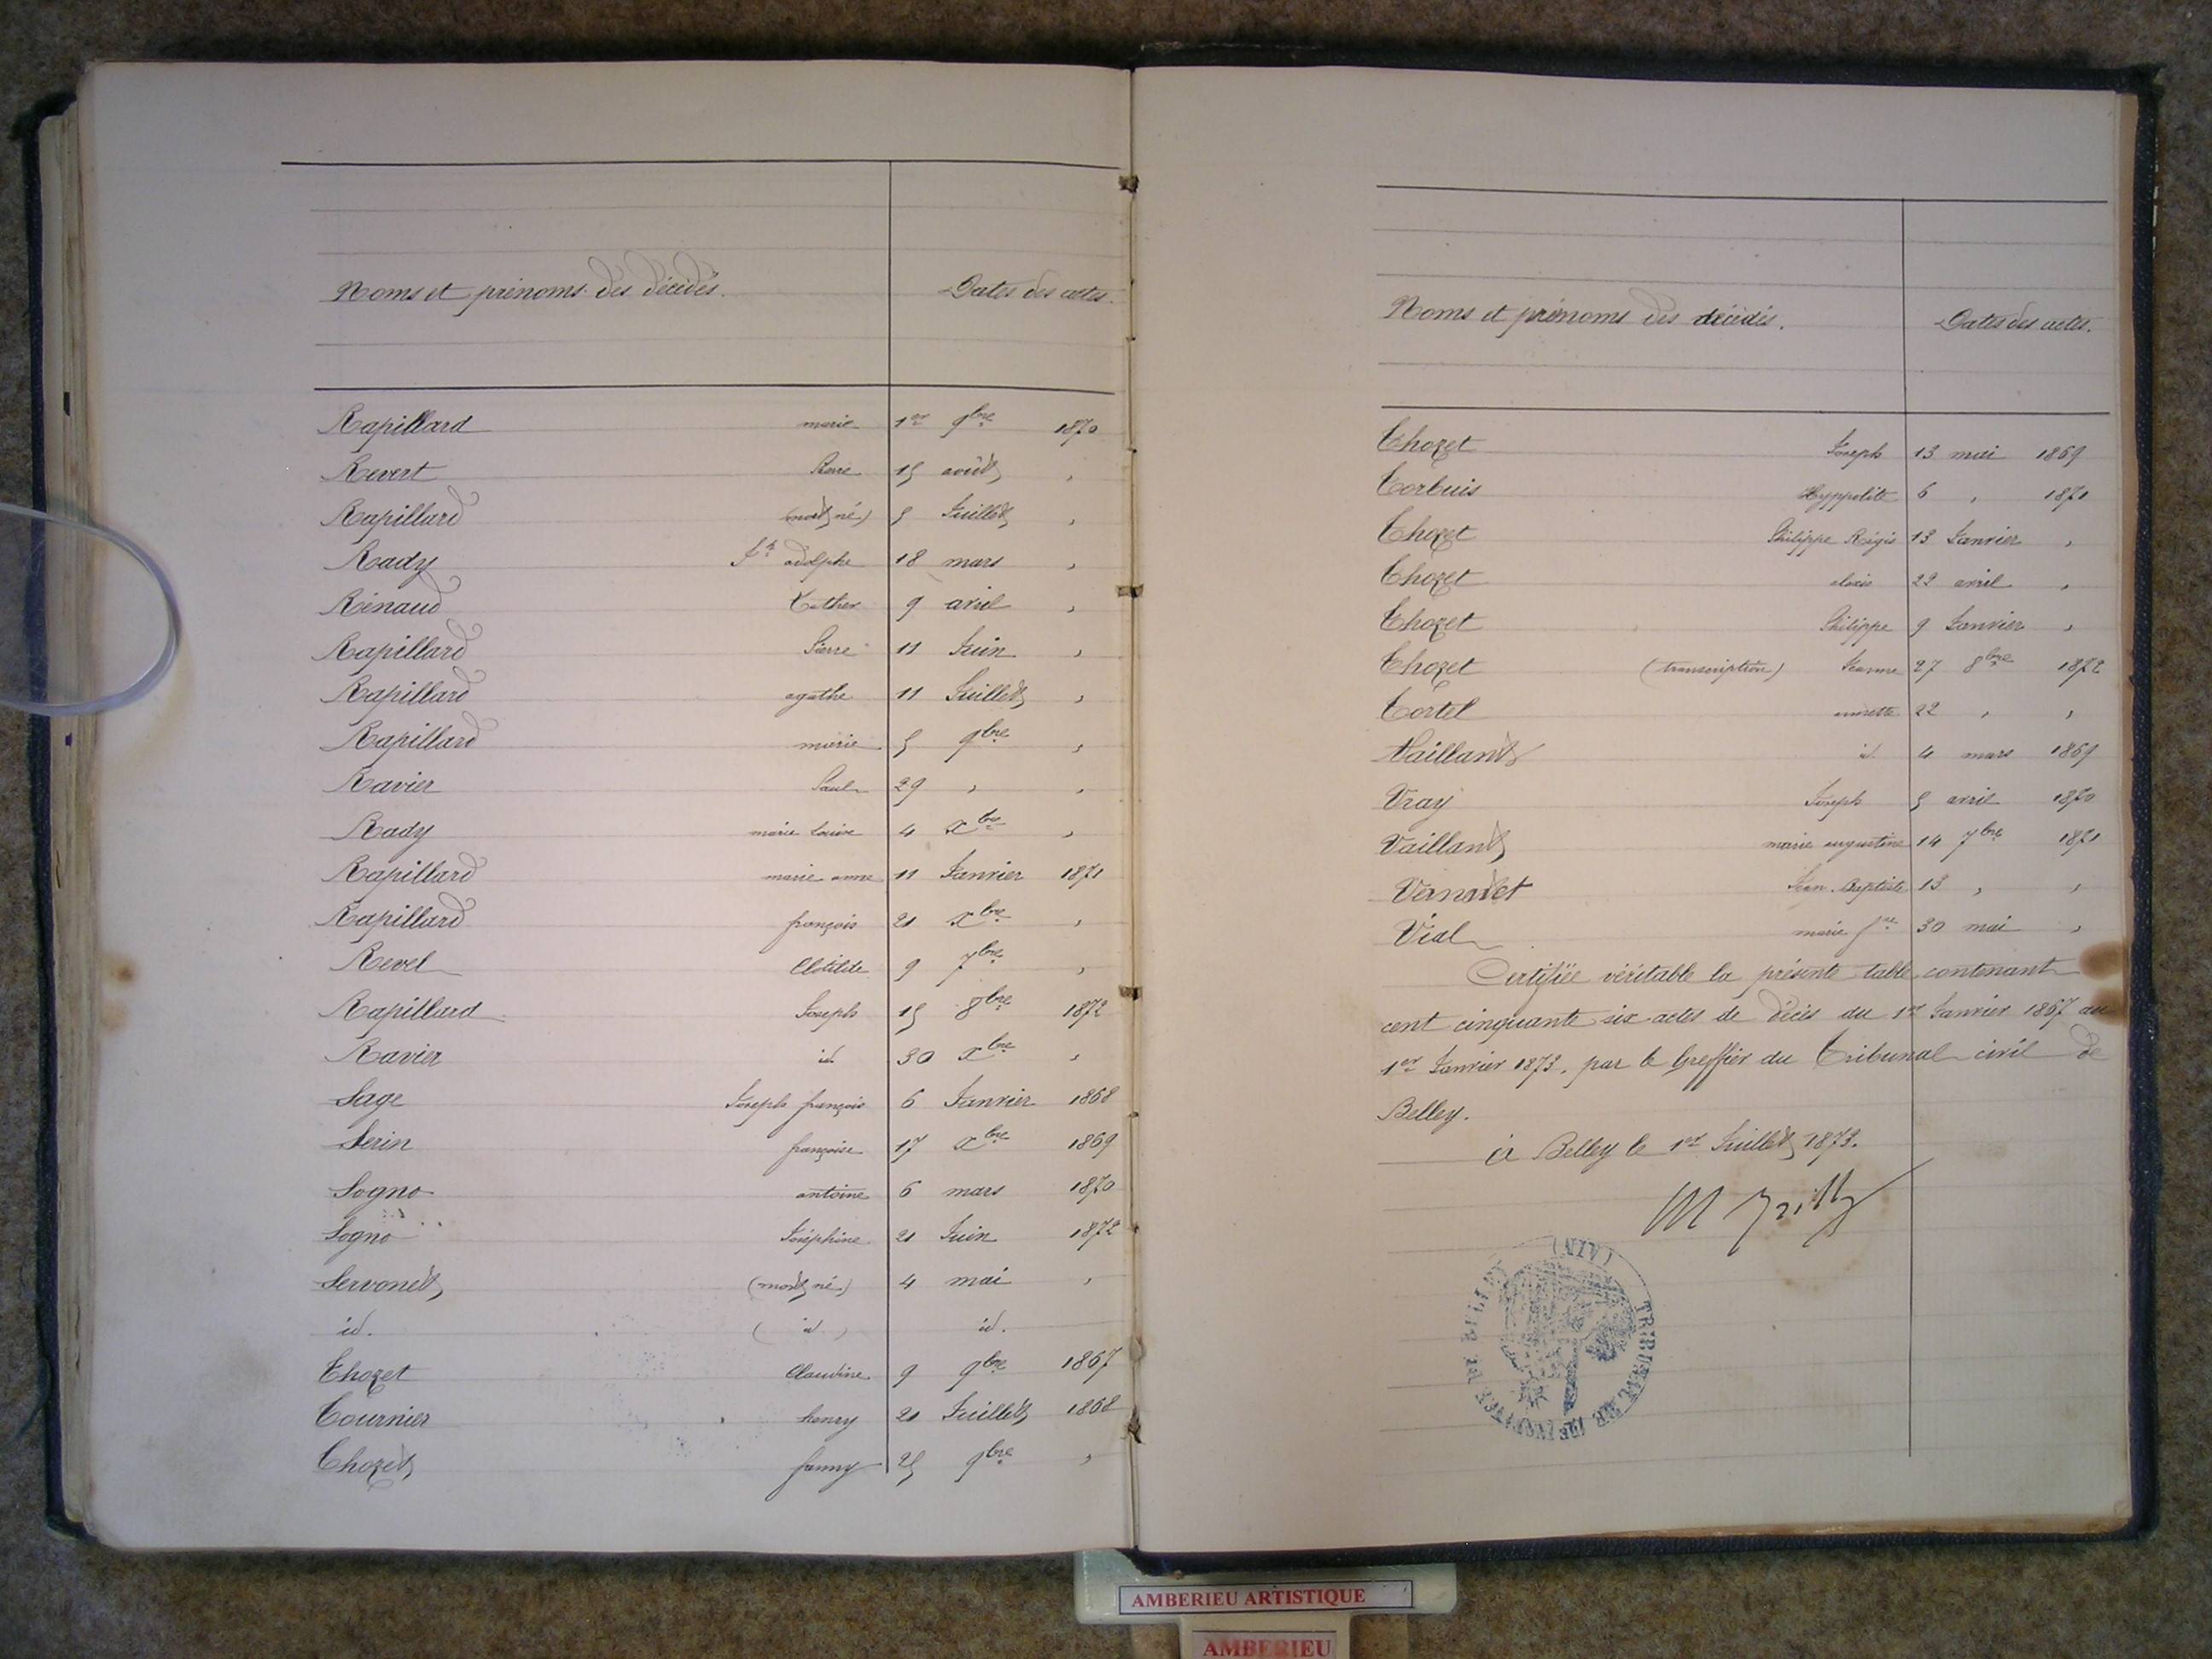 Noms et prénoms des décédés. Dates des actes.
Rapillard marie 1er 9bre 1870
Revert Pierre 15 août "
Rapillard (mort né) 5 Juillet "
Rady Jh adolphe 18 mars "
Rénaud Esther 9 avril "
Rapillard Pierre 11 Juin "
Rapillard agathe 11 Juillet "
Rapillard marie 5 9bre "
Ravier Paul 29 " "
Rady marie Louise 4 xbre "
Rapillard marie anne 11 Janvier 1871
Rapillard françois 21 xbre "
Revel Clotilde 9 7bre "
Rapillard Joseph 15 8bre 1872
Ravier id 30 xbre "
Sage Joseph françois 6 Janvier 1868
Serin françoise 17 xbre 1869
Sogno antoine 6 mars 1870
Sogno Joséphine 21 Juin 1872
Servonet (mort né) 4 mai "
id. ( id ) id.
Thozet Claudine 9 9bre 1867
Tournier henry 21 Juillet 1868
Thozet fanny 25 9bre "
Noms et prénoms des décédés. Dates des actes.
Thozet Joseph 13 mai 1869
Torbuis Hyppolite 6 " 1871
Thozet Philippe Régis 13 Janvier "
Thozet alexis 22 avril "
Thozet Philippe 9 Janvier "
Thozet (transcription) Jeanne 27 8bre 1872
Tortel annette 22 " "
Vaillant id 4 mars 1869
Vray Joseph 5 avril 1870
Vaillant marie augustine 14 7bre 1871
Jean-Baptiste 13 " "
Vial marie fse 30 mai "
Certifiée véritable la présente table contenant
cent cinquante six actes de décès du 1er Janvier 1867 au
1er Janvier 1873, par le Greffier du Tribunal civil de
Belley.
à Belley le 1er Juillet 1873.
TRIBUNAL DE 1ERE INSTANCE DE BELLEY (AIN)
AMBERIEU ARTISTIQUE
AMBERIEU